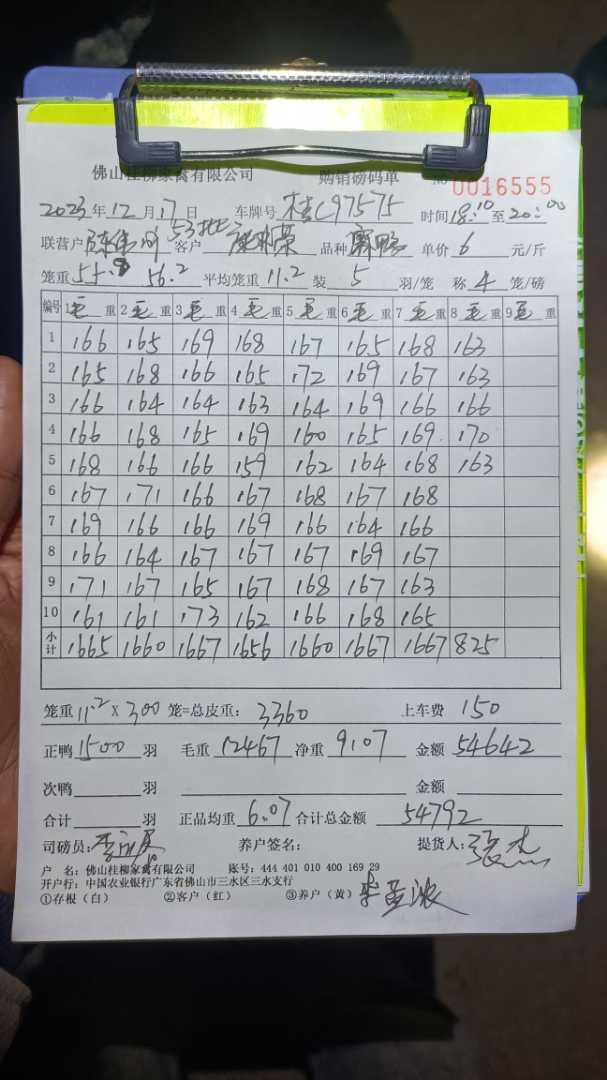 佛山桂柳家禽有限公司 购销磅码单 No 0016555
2023年12月17日 车牌号 桂C97575 时间18:10至20:00
联营户 53批 客户 品种 单价 6 元/斤
笼重 55.8 56.2 平均笼重 11.2 装 5 羽/笼 称 4 笼/磅
编号 1毛重 2毛重 3毛重 4毛重 5毛重 6毛重 7毛重 8毛重 9毛重
1 166 165 169 168 167 165 168 163
2 165 168 166 165 172 169 167 163
3 166 164 164 163 164 169 166 166
4 166 168 165 169 160 165 169 170
5 168 166 166 159 162 164 168 163
6 167 171 166 167 168 167 168
7 169 166 166 169 166 164 166
8 166 164 167 167 167 169 167
9 171 167 165 167 168 167 163
10 161 161 173 162 166 168 165
小计 1665 1660 1667 1656 1660 1667 1667 825
笼重 11.2 X 300 笼=总皮重: 3360 上车费 150
正鸭 1500 羽 毛重 12467 净重 9107 金额 54642
次鸭 羽 金额
合计 羽 正品均重 6.07 合计总金额 54792
司磅员: 养户签名: 提货人: 张杰
户 名: 佛山桂柳家禽有限公司 账号: 444 401 010 400 169 29
开户行: 中国农业银行广东省佛山市三水区三水支行
①存根（白） ②客户（红） ③养户（黄）